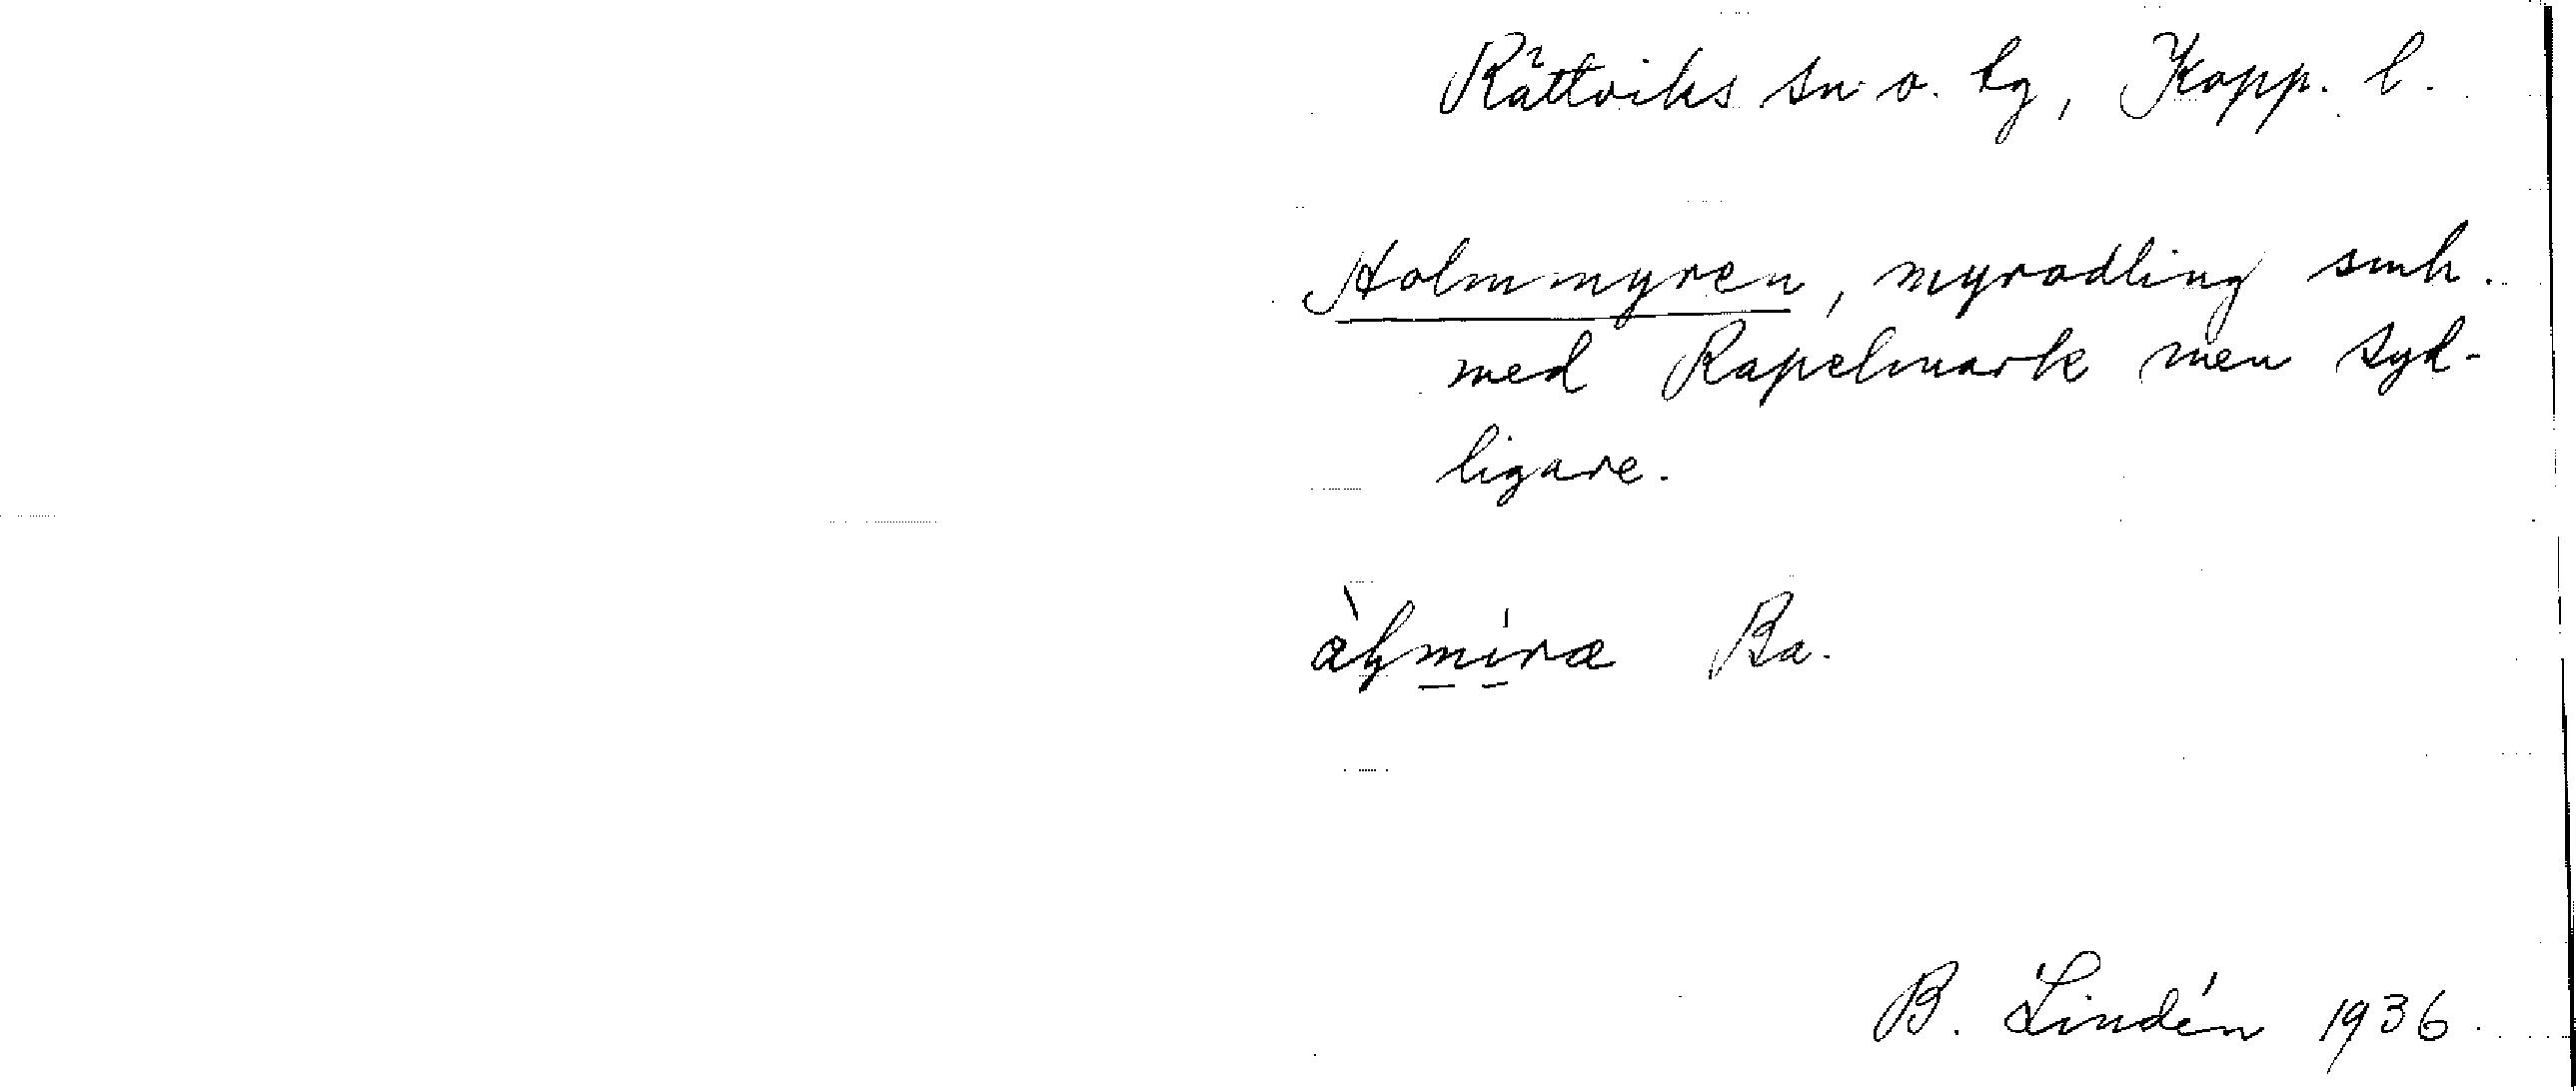 Rättviks sn o. tg, Kopp. l.
Holmmyren, myrodling smh.
med Rapelmark men syd-
ligare.
Ba.
B. Lindén 1936